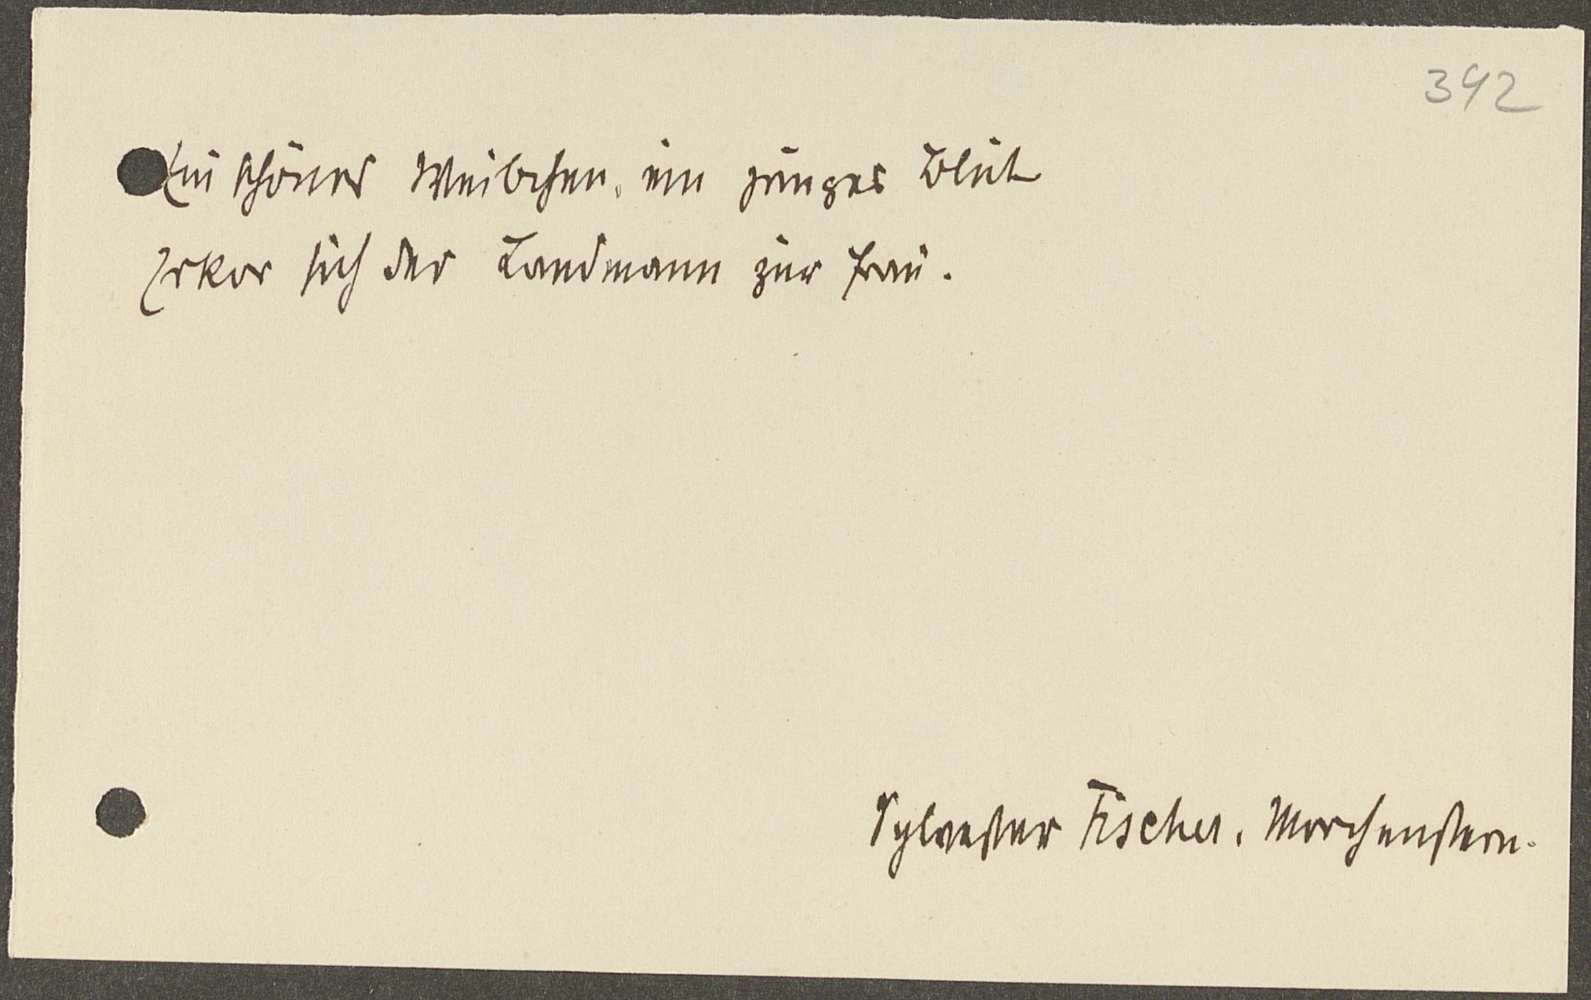 392
Ein schönes Weibchen, ein junges Blut
Erkor sich der Landmann zur Frau.
Sylvester Fischer, Morchenstern.